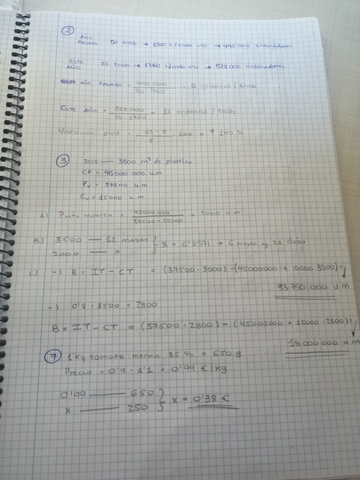 ②
AÑO PASADO 50 trab → 1760 h/cada uno → 440 000 ordenadores
ESTE AÑO 25 trab → 1760 h/cada uno → 528 000 ordenadores
AÑO PASADO = 440 000 / 50 · 1760 = 5 ordenad / trab
Este Año = 528 000 / 25 · 1760 = 12 ordenad / trab
Variación prod = 12 - 5 / 5 · 100 = 140 %
③ 2015 — 3500 m³ de plástico
CF = 45 000 000 u m
Pv = 37500 u m
Cv = 15000 u m
A) Punto muerto = 45000000 / 37500 - 15000 = 2000 u f
B) 3500 — 12 meses
2000 — x } x = 6'8571 → 6 meses y 26 días
C) -) B = IT - CT = (37500 · 3500) - (45000000 + 15000 · 3500) =
33 750 000 u m
-) 0'8 · 3500 = 2800
B = IT - CT = (37500 · 2800) - (45000000 + 15000 · 2800) =
18 000 000 u m
⑦ 1 Kg tomate merma 35 % = 650 g
Precio = 0'9 · 1'1 = 0'99 € / Kg
0'99 — 650
x — 250 } x = 0'38 €